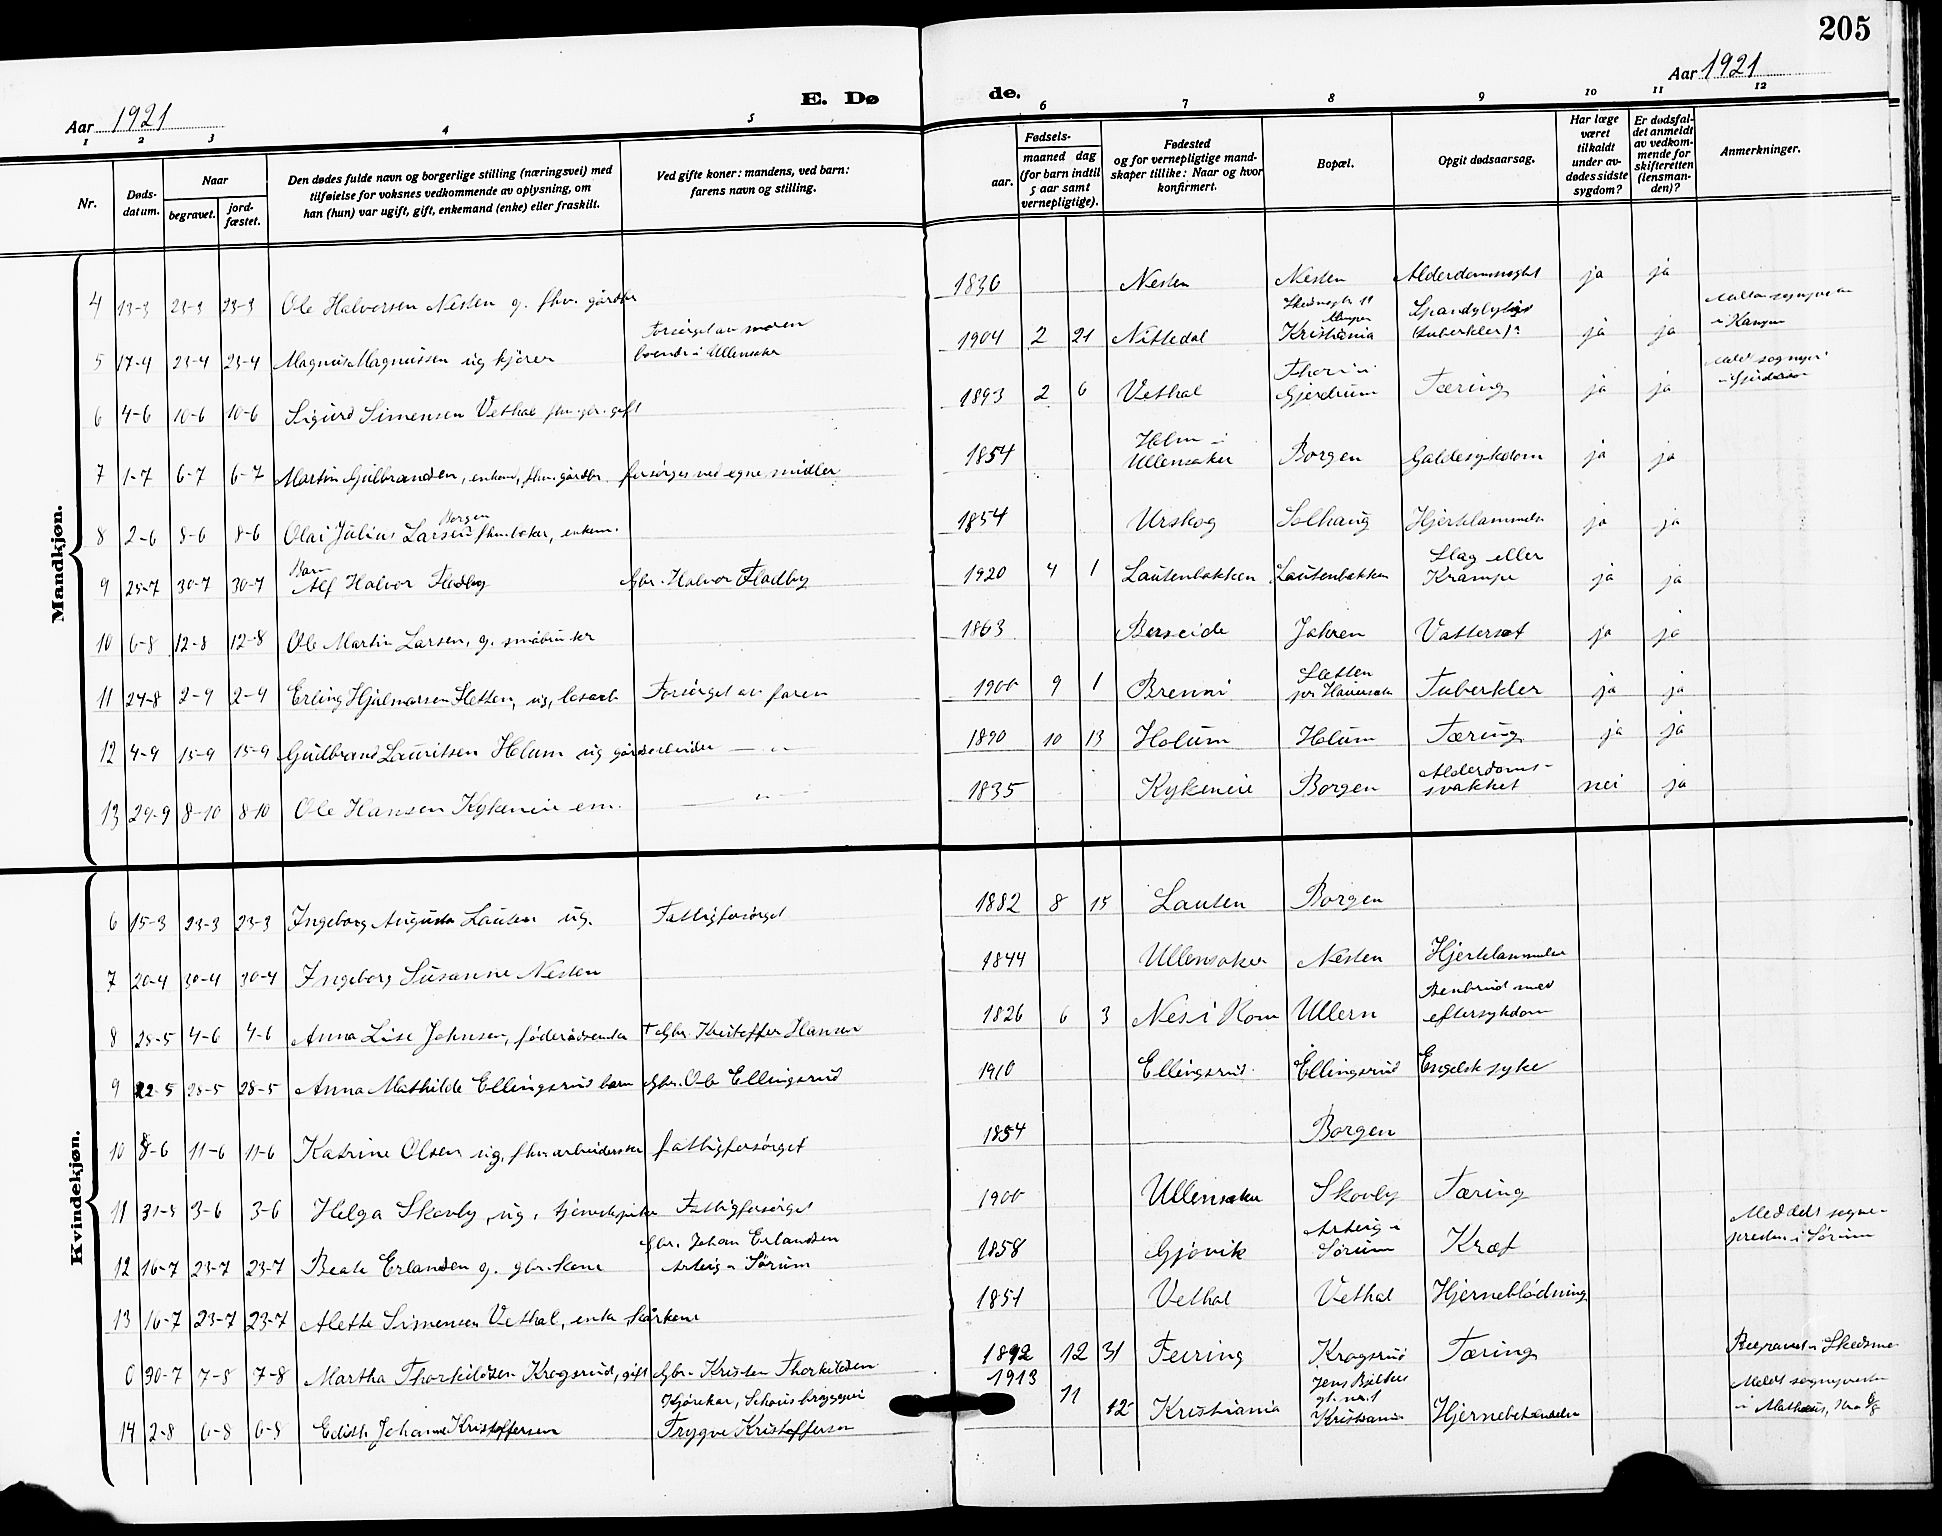 205
Aar 1921
E. Dø
de.
Aar 1921
1 2 3 4 5 6 7 8 9 10 11 12
Nr.
Døds-
datum.
Naar
begravet.
jord-
fæstet.
Den dødes fulde navn og borgerlige stilling (næringsvei) med
tilføielse for voksnes vedkommende av oplysning, om
han (hun) var ugift, gift, enkemand (enke) eller fraskilt.
Ved gifte koner: mandens, ved barn:
farens navn og stilling.
Fødsels-
aar.
maaned dag
(for barn indtil
5 aar samt
vernepligtige).
Fødested
og for vernepligtige mand-
skaper tillike: Naar og hvor
konfirmert.
Bopæl.
Opgit dødsaarsag.
Har læge
været
tilkaldt
under av-
dødes sidste
sygdom?
Er dødsfal-
det anmeldt
av vedkom-
mende for
skifteretten
(lensman-
den)?
Anmerkninger.
Mandkjøn.
4 13-3 23-3 23-3 Ole Halvorsen Nesten g. fhv. gårdbr 1836 Nesten Nesten ja ja
5 17-4 23-4 23-4 Magnus Magnussen ug kjører Forsørget av moren
boende i Ullensaker 1904 2 21 Nittedal Kristiania ja ja
6 4-6 10-6 10-6 Sigurd Simensen Vethal fhv. gbr. gift 1893 2 6 Vethal Gjerdrum Tæring ja ja
7 1-7 6-7 6-7 Martin Gulbrandsen, enkem, fhv. gårdbr. forsørges ved egne midler 1854 Holm i
Ullensaker Borgen Galdesykdom ja ja
8 2-6 8-6 8-6 Olai Julius Larsen Borgen enkem. 1854 Urskog Solhaug Hjertelammelse ja ja
9 25-7 30-7 30-7 Barn
Alf Halvor Fladby Gbr. Halvor Fladby 1920 4 1 Lautenbakken Lautenbakken Slag eller
Krampe ja ja
10 6-8 12-8 12-8 Ole Martin Larsen, g. småbruker 1863 Berseide Jahren Vattersot ja ja
11 24-8 2-9 2-9 Erling Hjalmarsen Sletten, ug, løsarb Forsørget av faren 1900 9 1 Brenni Sletten Tuberkler ja ja
12 4-9 15-9 15-9 Gulbrand Lauritsen Holum ug gårdsarbeider — " — 1890 10 13 Holum Holum Tæring ja ja
13 29-9 8-10 8-10 Ole Hansen Kykeneie em. — " — 1835 Kykeneie Borgen Alderdoms-
svakhet nei ja
Kvindekjøn.
6 15-3 23-3 23-3 Ingeborg Augusta Lauten ug. Fattigforsørget 1882 8 15 Lauten Borgen
7 20-4 30-4 30-4 Ingeborg Susanne Nesten 1844 Ullensaker Nesten Hjertelammelse
8 25-5 4-6 4-6 Anna Lise Johnsen, føderådsenke † Gbr. Kristoffer Hansen 1826 6 3 Nes i Rom Ullern Benbrud med
eftersykdom
9 22-5 28-5 28-5 Anna Mathilde Ellingsrud barn Gbr. Ole Ellingsrud 1910 Ellingsrud Ellingsrud Engelsk syke
10 8-6 11-6 11-6 Katrine Olsen ug. fhv. arbeiderske fattigforsørget 1854 Borgen
11 31-5 3-6 3-6 Helga Skovly, ug, tjenestepike Fattigforsørget 1900 Ullensaker Skovly Tæring
12 16-7 23-7 23-7 Beate Erlandsen g. gbr. kone Gbr. Johan Erlandsen
Asteig i Sørum 1858 Gjøvik Asteig i
Sørum Kræft Meddelt sogne-
presten i Sørum
13 16-7 23-7 23-7 Alette Simensen Vethal, enke kårkone 1851 Vethal Vethal Hjerneblødning
0 30-7 7-8 7-8 Martha Thorkildsen Krogsrud, gift Gbr. Kristen Thorkildsen 1892 12 31 Feiring Krogsrud Tæring Begravet i Skedsmo
14 2-8 6-8 6-8 Edith Johanne Kristoffersen Kjørekar, Schous bryggeri
Trygve Kristoffersen 1913 11 12 Kristiania Kristiania Hjernebetændelse